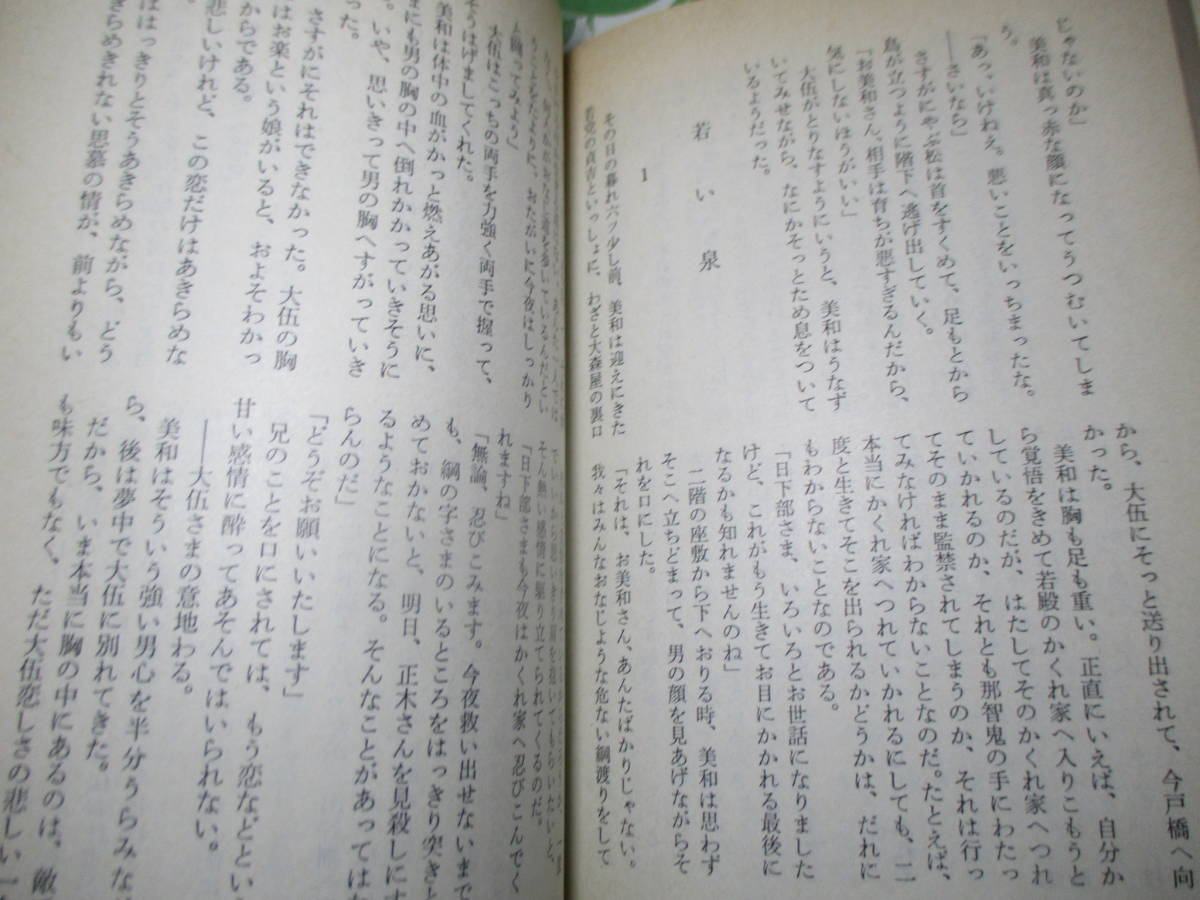 じゃないのか」
美和は真っ赤な顔になってうつむいてしま
う。
「あっ、いけねえ。悪いことをいっちまったな。
――さいなら」
さすがにやぶ松は首をすくめて、足もとから
鳥が立つように階下へ逃げ出していく。
「お美和さん、相手は育ちが悪すぎるんだから、
気にしないほうがいい」
大伍がとりなすようにいうと、美和はうなず
いてみせながら、なにかそっとため息をついて
いるようだった。
若い泉
1
その日の暮れ六ツ少し前、美和は迎えにきた
若党の貞吉といっしょに、わざと大森屋の裏口
から、大伍にそっと送り出されて、今戸橋へ向
かった。
美和は胸も足も重い。正直にいえば、自分か
ら覚悟をきめて若殿のかくれ家へ入りこもうと
しているのだが、はたしてそのかくれ家へつれ
ていかれるのか、それとも那智鬼の手にわたっ
てそのまま監禁されてしまうのか、それは行っ
てみなければわからないことなのだ。たとえば、
本当にかくれ家へつれていかれるにしても、二
度と生きてそこを出られるかどうかは、だれに
もわからないことなのである。
「日下部さま、いろいろとお世話になりました
けど、これがもう生きてお目にかかれる最後に
なるかも知れませんのね」
二階の座敷から下へおりる時、美和は思わず
そこへ立ちどまって、男の顔を見あげながらそ
れを口にした。
「それは、お美和さん、あんたばかりじゃない。
我々はみんなおなじような危ない綱渡りをして
いるんだ
おたがいに今夜はしっかり
と綱ってみよう」
大伍はこっちの両手を力強く両手で握って、
そうはげましてくれた。
美和は体中の血がかっと燃えあがる思いに、
まにも男の胸の中へ倒れかかっていきそうに
った。
いや、思いきって男の胸へすがっていき
さすがにそれはできなかった。大伍の胸
はお楽という娘がいると、およそわかっ
からである。
悲しいけれど、この恋だけはあきらめな
ははっきりとそうあきらめながら、どう
きらめきれない思慕の情が、前よりもい
そん熱い感情に駆り立てられてくるのだ。
「日下部さまも今夜はかくれ家へ忍びこんでく
れますね」
「無論、忍びこみます。今夜救い出せないまで
も、綱の字さまのいるところをはっきり突きと
めておかないと、明日、正木さんを見殺しにす
るようなことになる。そんなことがあってはな
らんのだ」
「どうぞお願いいたします」
兄のことを口にされては、もう恋などとい
甘い感情に酔ってあそんではいられない。
――大伍さまの意地わる。
美和はそういう強い男心を半分うらみな
ら、後は夢中で大伍に別れてきた。
だから、いま本当に胸の中にあるのは、敵
も味方でもなく、ただ大伍恋しさの悲しい一